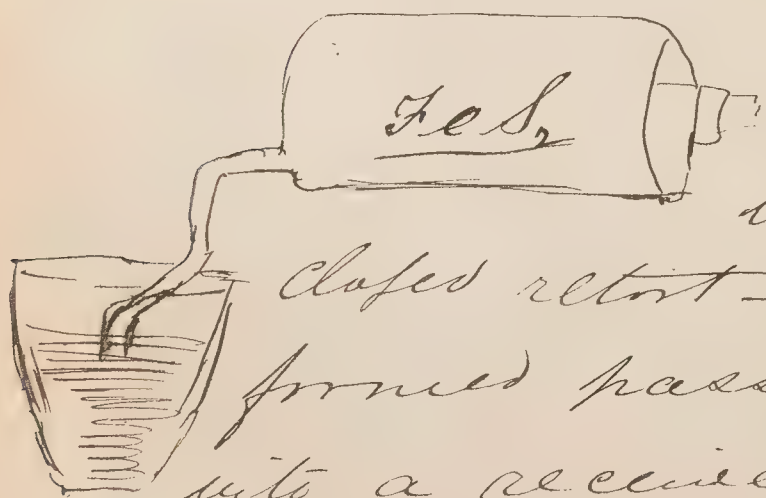 FeS2
closed retort —
formed pass
into a receive